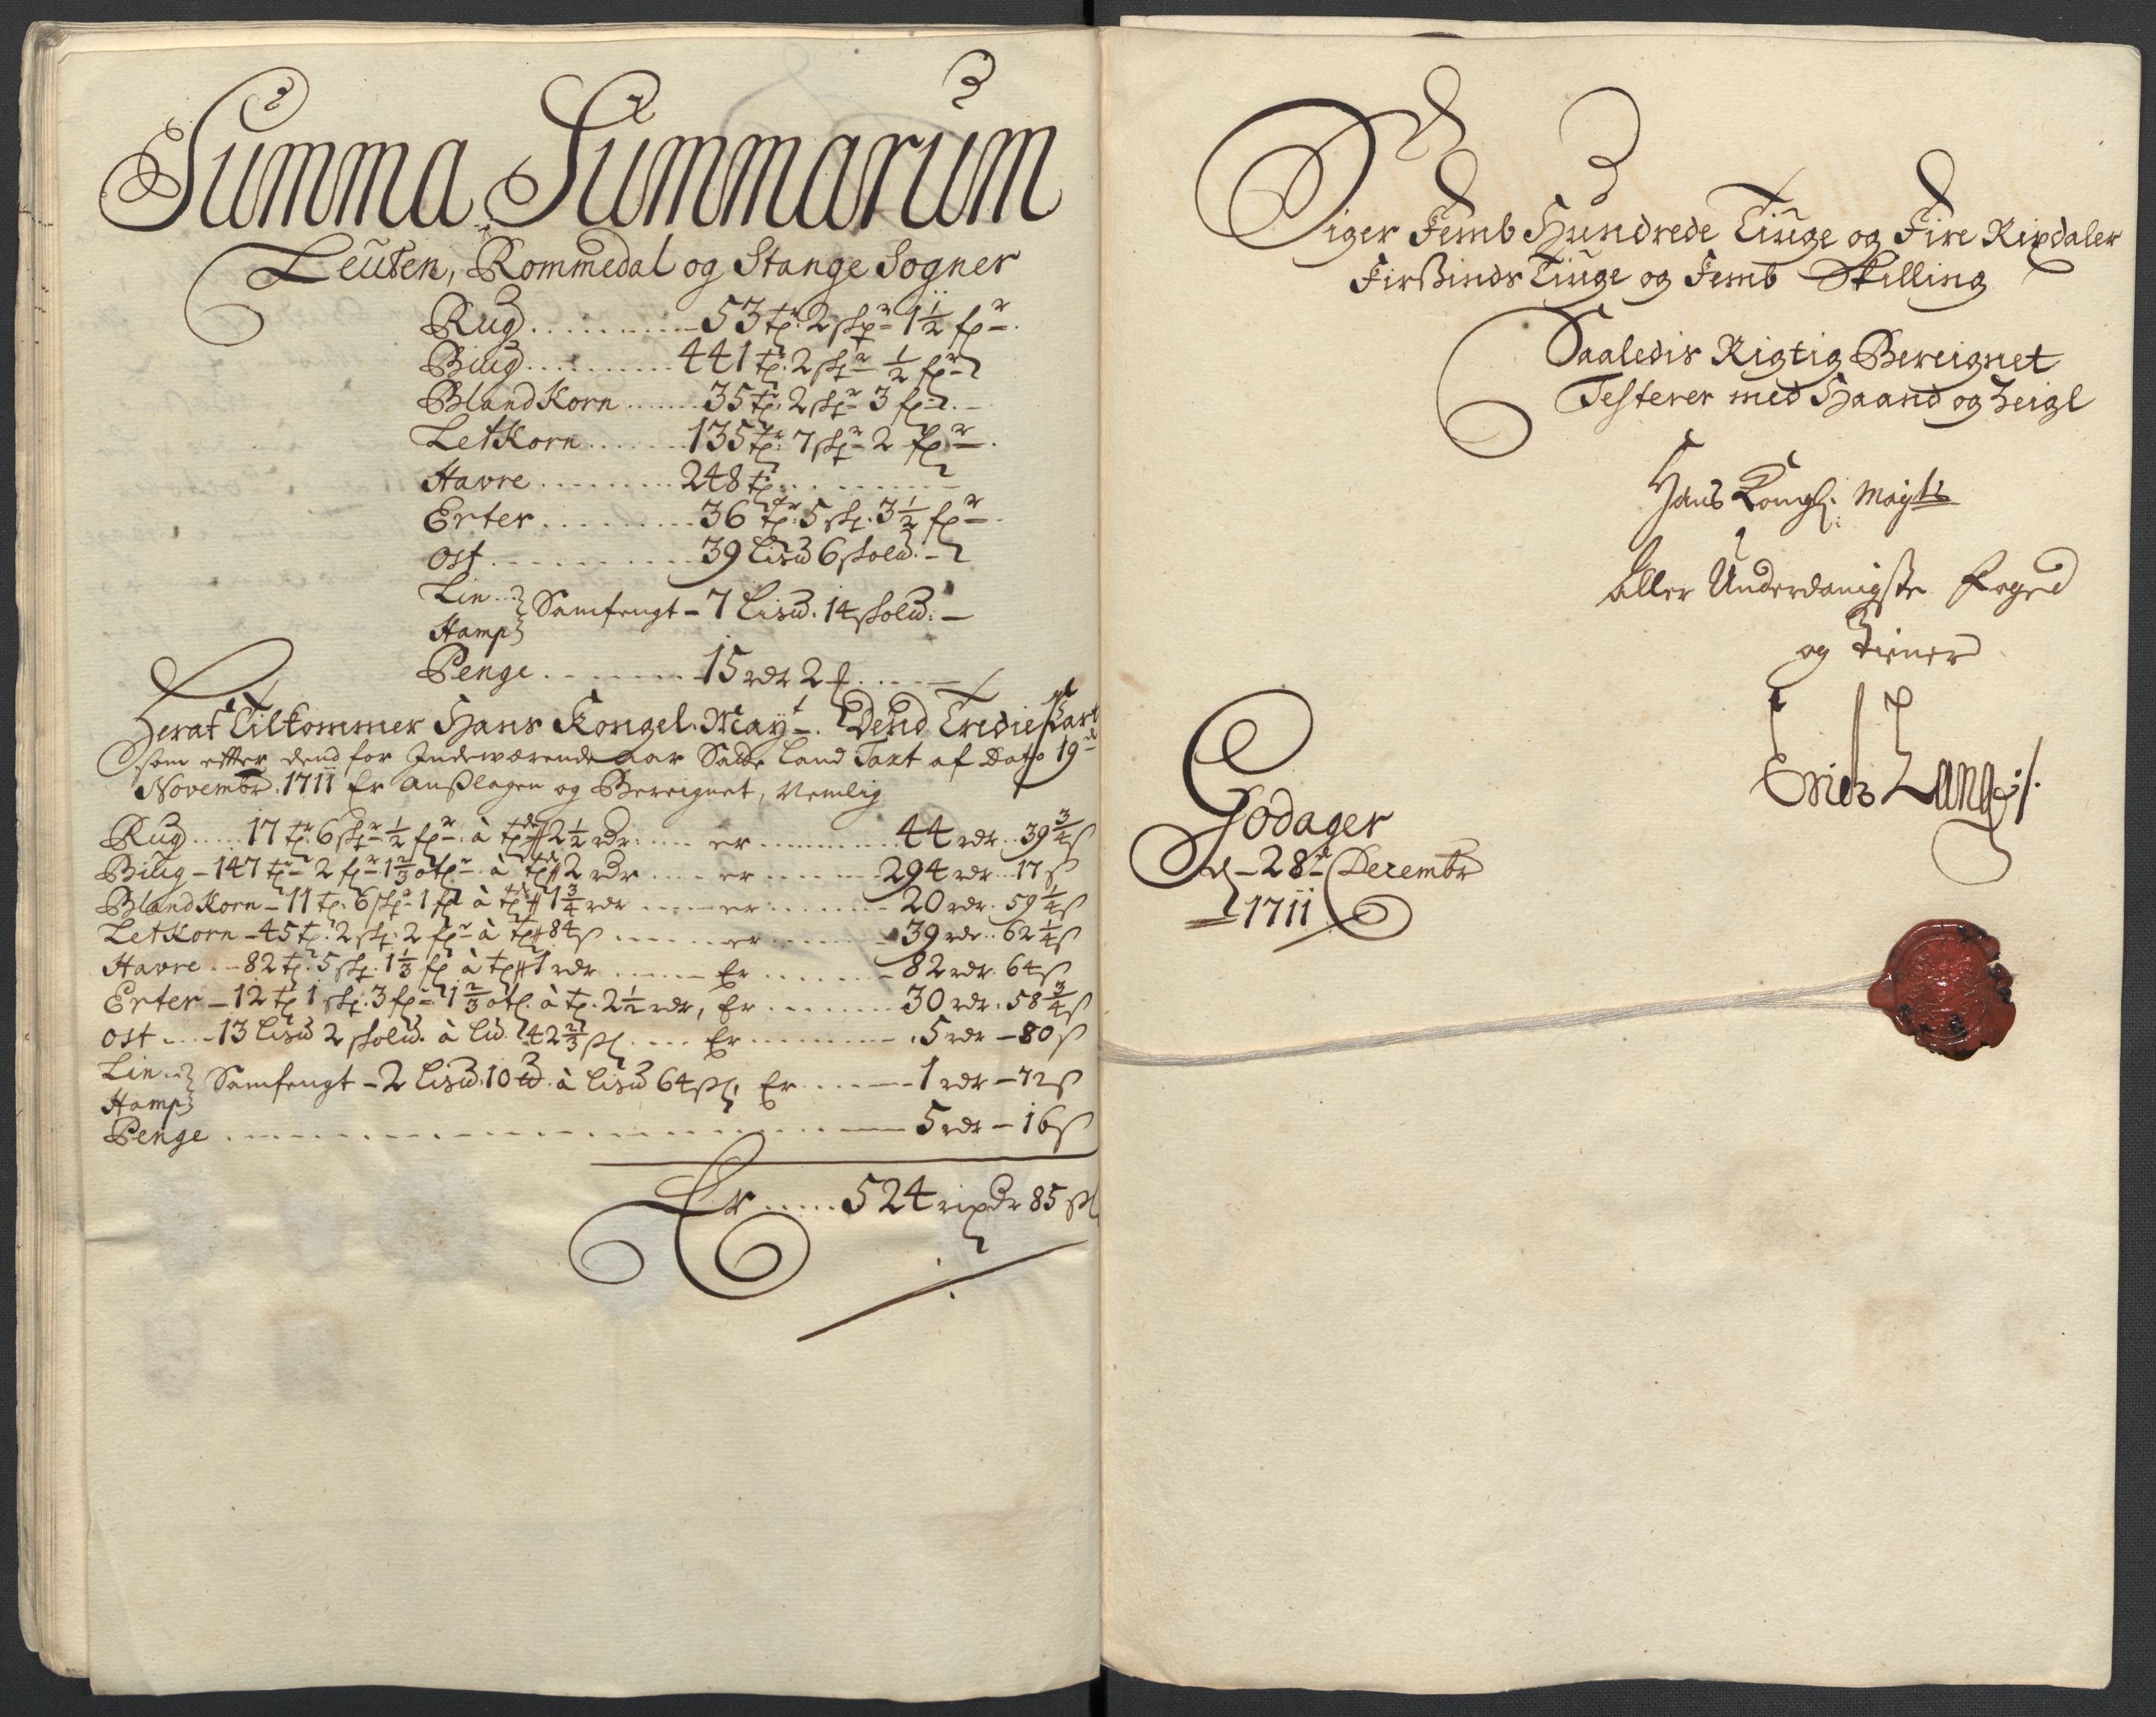 Summa Summarum
Leuten, Rommedal og Stange Sogner
Rug .......... 53 tr: 2 skpr 1½ fpr.
Biug .......... 441 tr: 2 skpr ½ fpr
Bland Korn ...... 35 tr: 2 skpr 3 fpr. -
Let Korn ...... 135 tr: 7 skpr 2 fpr.
Havre ......... 248 tr. ........
Erter .......... 36 tr: 5 skp. 3½ fpr.
Ost .......... 39 Lisu 6 skolu: -
Lin..
Hamp
Samfengt - 7 Lisu. 14 skolu: -
Penge ........ 15 rdr 2 s. .... -
Heraf Tilkommer Hans Kongel. Mayt. Dend Tredie Part
som efter dend for Indeværende aar Satte Land Taxt af Dato 19de
Novembr. 1711 Er Anslagen og Bereignet, Nemlig
Rug ..... 17 tr: 6 skpr ½ fpr. à td 2½ rdr: ..... er .......... 44 rdr .. 39¾ s
Biug - 147 tr 2 fpr 1⅔ otr. à td 2 rdr .... er ...... - 294 rdr .. 17 s
Bland Korn - 11 tr. 6 skpr 1 fp à td 1¾ rdr ..... er ....... - 20 rdr. 59¼ s
Let Korn - 45 tr. 2 skp: 2 fpr à td 84 s ........ er ........ 39 rdr .. 62¼ s
Havre .. - 82 tr. 5 skp: 1⅓ fp à td 1 rdr ...... Er ....... - 82 rdr. 64 s
Erter - 12 tr 1 skp. 3 fpr. 1⅔ otr. à tr. 2½ rdr, Er ....... - 30 rdr. 58¾ s
Ost .... - 13 Lisu 2 skolu. à Lu. 42⅔ ss .... Er ......... . 5 rdr - 80 s
Lin..
Hamp
Samfengt - 2 Lisu. 10 u. à Lisu 64 ss, Er ...... - 1 rdr - 72 s
Penge ............................ 5 rdr - 16 s
Er ..... 524 rixdr 85 ss
Siger Femb Hundrede Tiuge og Fire Rixdaler
Firsinds Tiuge og Femb Skilling
Saaledis Rigtig Bereignet
Testerer med Haand og Zeigl
Hans Kongl: Mayts
Aller Underdanigste Foged
og Tiener
Erich Lang /.
Godager
d - 28de Decembr
1711